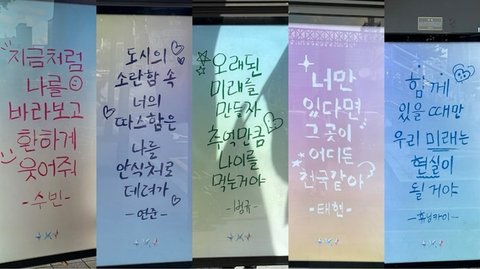 지금처럼
나를
바라보고
환하게
웃어줘
-수빈-
도시의
소란함 속
너의
따스함은
나를
안식처로
데려가
-연준-
오래된
미래를
만들자
추억만큼
나이를
먹는거야
-범규-
너만
있다면
그곳이
어디든
천국같아
-태현-
함께
있을 때만
우리 미래는
현실이
될거야
-휴닝카이-